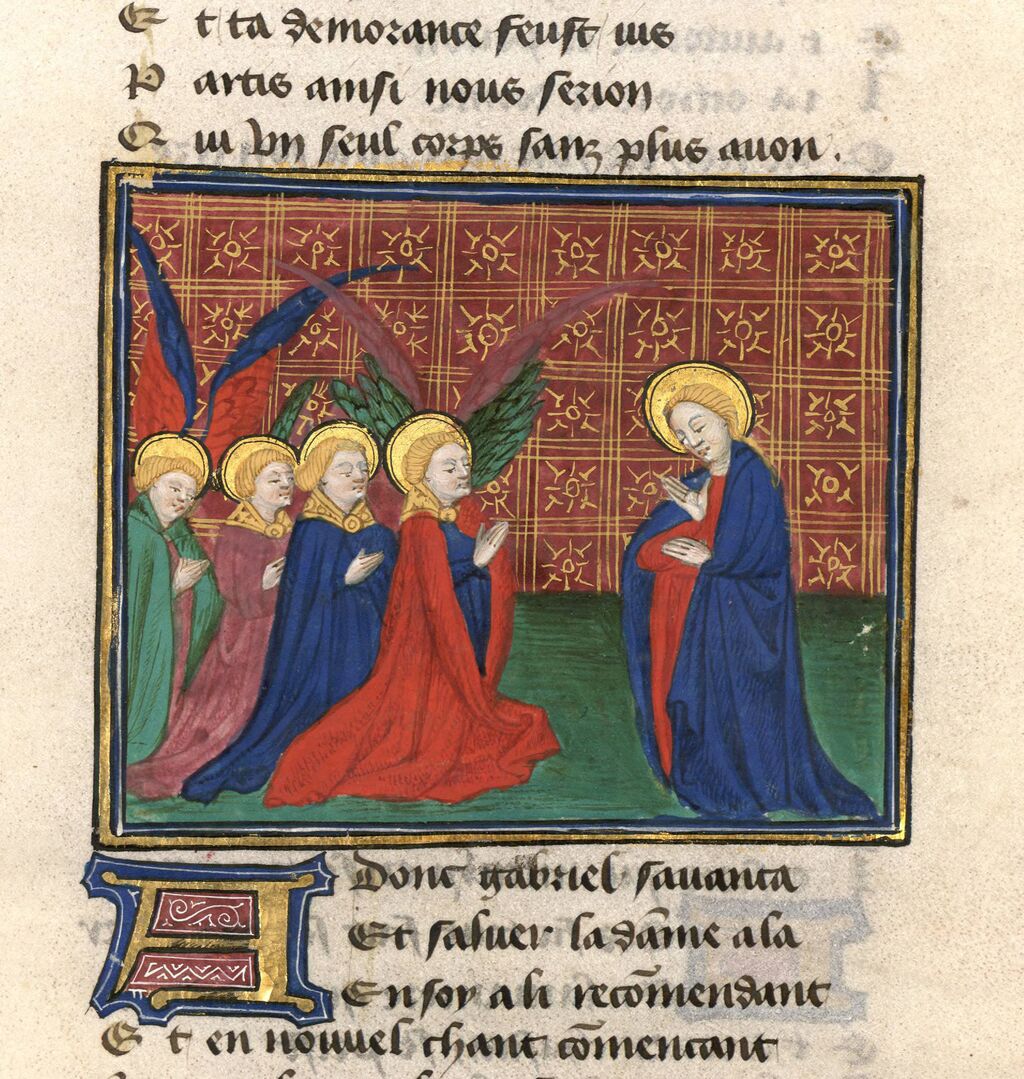 E t ta demorance feust uis
P artis ainsi nous serion
Q ui vn seul corps sanz plus auon.
A donc gabriel sauanca
Et saluer la dame ala
En soy a li recōmendant
E t en nouuel chant cōmencant